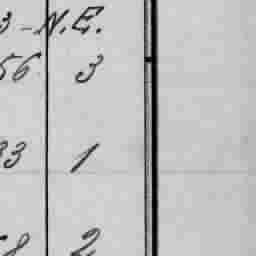 3-N.E.
56 3
33 1
58 2